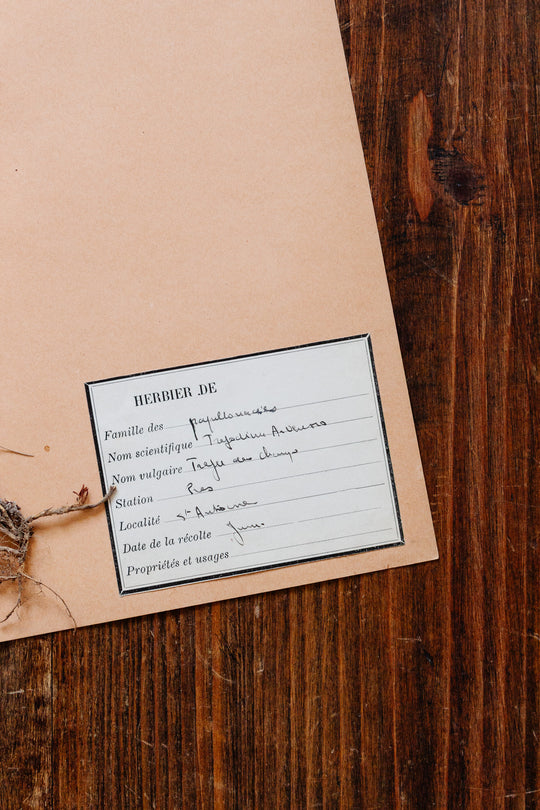 HERBIER DE
Famille des papillonacées
Nom scientifique Trifolium Arvensis
Nom vulgaire Trèfle des champs
Station Prés
Localité St Antoine
Date de la récolte Juin.
Propriétés et usages